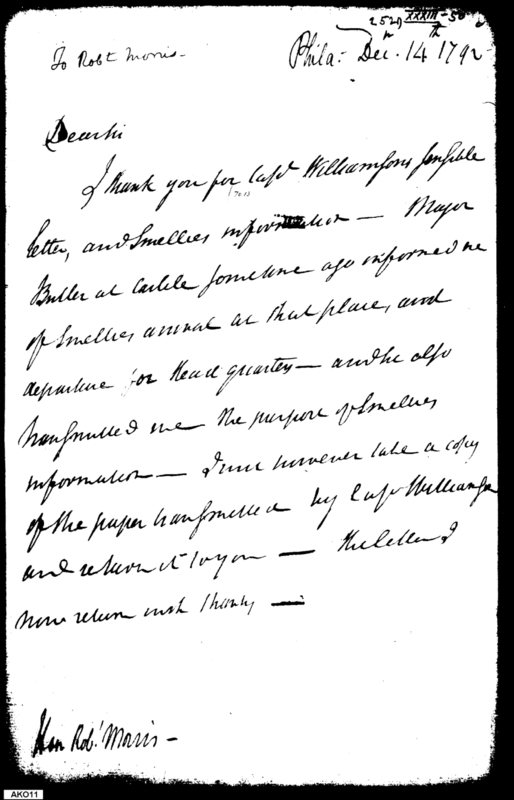 2520 XXXIII-50
To Robt Morris-
Phila- Dec. 14th 1792-
Dear sir
I thank you for Capt Williamsons sensible
letter, and Smellies information — Major
Butler at Carlile sometime ago informed me
of Smellies arrival at that place, and
departure for Head quarters — and he also
transmitted me the purport of Smellies
information — I will however take a copy
of the paper transmitted by Capt Williamson
and return it to you — The letter I
now return with thanks —
Hon Robt Morris -
AKO11